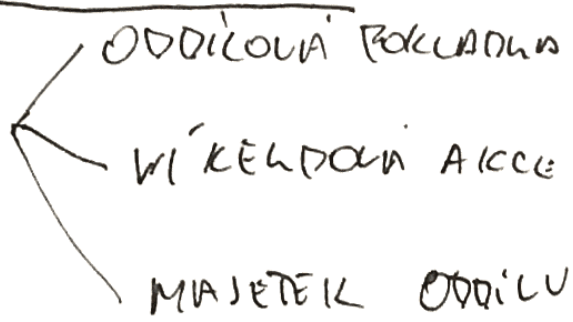 ODDÍLOVÁ POKLADNA
VÍKENDOVÁ AKCE
MAJETEK ODDÍLU